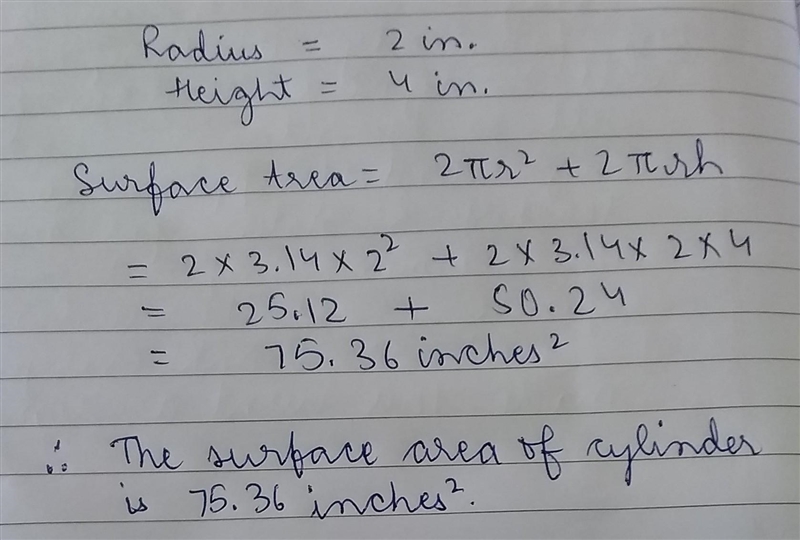 Radius = 2 in.
Height = 4 in.
Surface Area = 2πr² + 2πrh
= 2 × 3.14 × 2² + 2 × 3.14 × 2 × 4
= 25.12 + 50.24
= 75.36 inches²
∴ The surface area of cylinder
is 75.36 inches².